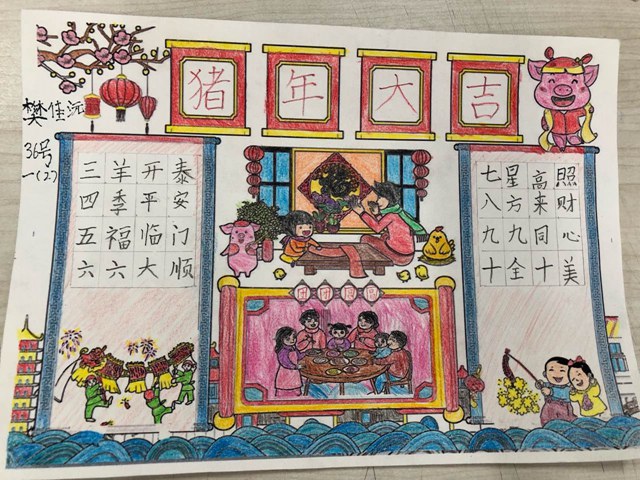 猪年大吉
樊佳沅
36号
一(2)
三羊开泰
四季平安
五福临门
六六大顺
七星高照
八方来财
九九同心
十全十美